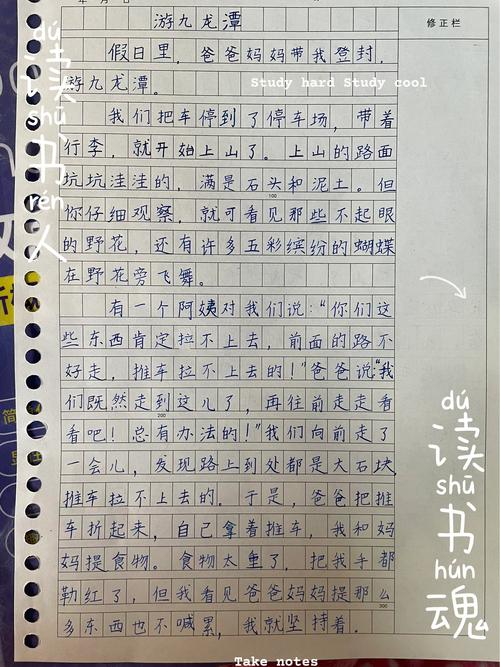 年 月 日
游九龙潭
修正栏
假日里，爸爸妈妈带我登封，
游九龙潭。
Study hard Study cool
我们把车停到了停车场，带着
行李，就开始上山了。上山的路面
坑坑洼洼的，满是石头和泥土。但
100
你仔细观察，就可看见那些不起眼
的野花，还有许多五彩缤纷的蝴蝶
在野花旁飞舞。
有一个阿姨对我们说：“你们这
些东西肯定拉不上去，前面的路不
好走，推车拉不上去的！”爸爸说“我
们既然走到这儿了，再往前走走看
200
看吧！总有办法的！”我们向前走了
一会儿，发现路上到处都是大石块，
推车拉不上去的。于是，爸爸把推
车折起来，自己拿着推车，我和妈
妈提食物。食物太重了，把我手都
勒红了，但我看见爸爸妈妈提那么
300
多东西也不喊累，我就坚持着。
dú
读
shū
书
rén
人
dú
读
shū
书
hún
魂
Take notes